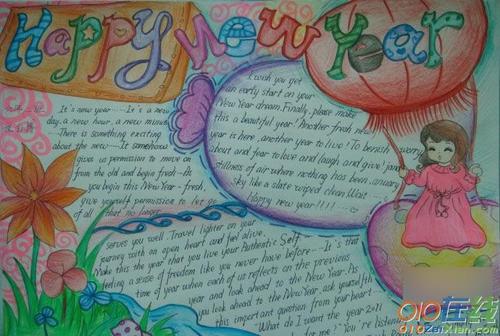 Happy New Year
It's new year — It's a new
day, a new hour, a new minute
There is something exciting
about the new — It somehow
gives us permission to move on
from the old and begin fresh
you begin this New Year - fresh,
give yourself permission to let go
of all that no longer
serves you well. Travel lighter on your
journey with an open heart and feel alive.
Make this the year that you live your Authentic Self
feeling a sense of freedom like you never have before — It's that
time of year when each of us reflects on the previous
year and look ahead to the New Year. As
you look ahead to the New Year, ask yourself
this important question from your heart
"What do I want the year 2011
for me" You're listening
I wish you get
an early start on your
New Year dream. Finally, please make
this a beautiful year! Another fresh new
year is here, another year to live! To banish worry
about and fear to love and laugh and give!
stillness of air where nothing has been
sky like a slate wiped clean. Wait
Happy new year!!!!
010在线
010zaixian.com